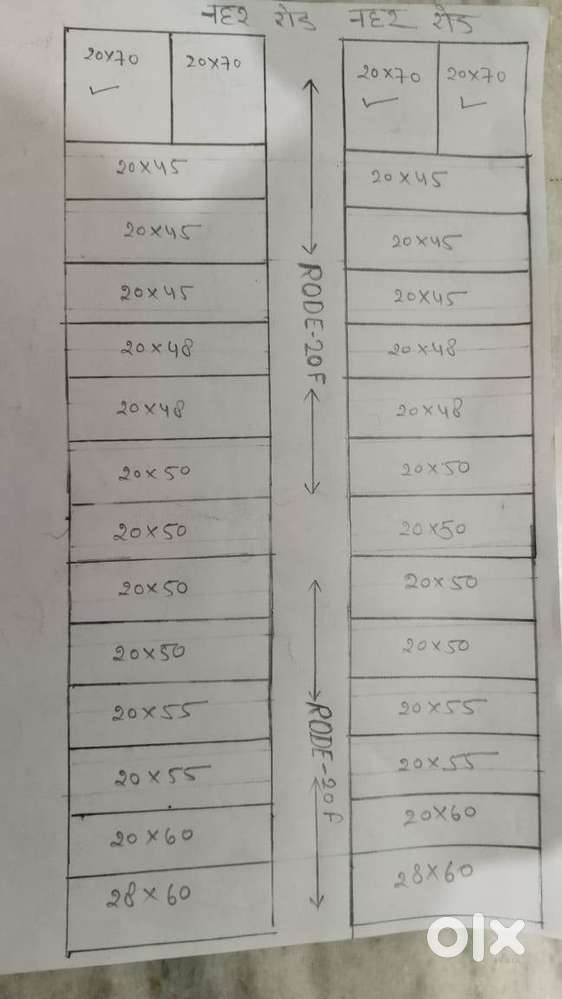 नहर रोड नहर रोड
20×70 20×70
20×45
20×45
20×45
20×48
20×48
20×50
20×50
20×50
20×50
20×55
20×55
20×60
28×60
RODE-20F
RODE-20F
20×70 20×70
20×45
20×45
20×45
20×48
20×48
20×50
20×50
20×50
20×50
20×55
20×55
20×60
28×60
olx